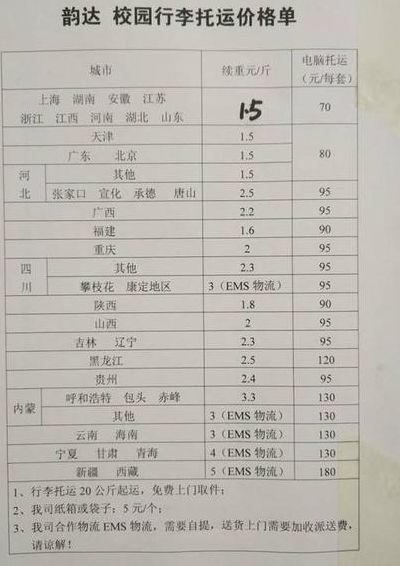 韵达 校园行李托运价格单
城市 续重元/斤 电脑托运（元/每套）
上海 湖南 安徽 江苏
浙江 江西 河南 湖北 山东 1.5 70
天津 1.5
广东 北京 1.5 80
河北 其他 1.5
张家口 宣化 承德 唐山 2.5 95
广西 2.2 95
福建 1.6 90
重庆 2 95
四川 其他 2.3 95
攀枝花 康定地区 3（EMS 物流） 95
陕西 1.8 90
山西 2 95
吉林 辽宁 2.3 95
黑龙江 2.5 120
贵州 2.4 95
内蒙 呼和浩特 包头 赤峰 3.3 130
其他 3（EMS 物流） 130
云南 海南 3（EMS 物流） 130
宁夏 甘肃 青海 4（EMS 物流） 130
新疆 西藏 5（EMS 物流） 180
1、行李托运 20 公斤起运，免费上门取件；
2、我司纸箱或袋子：5 元/个；
3、我司合作物流 EMS 物流，需要自提，送货上门需要加收派送费，
请谅解！